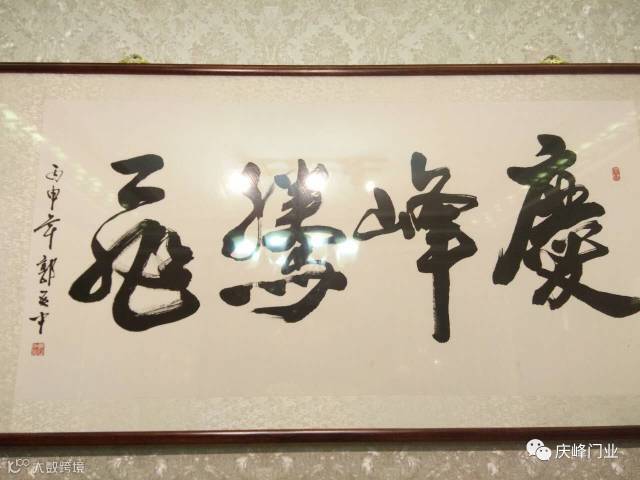 慶峰騰飛
丙申年
庆峰门业
大数跨境